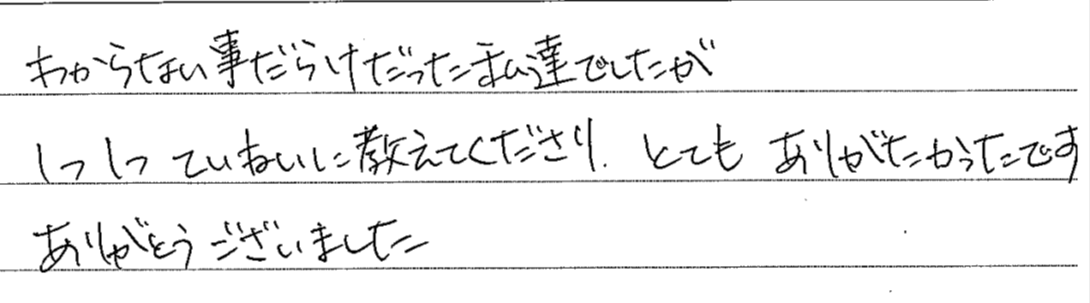 わからない事だらけだった私達でしたが
1つ1つ ていねいに教えてくださり、とても ありがたかったです
ありがとうございました